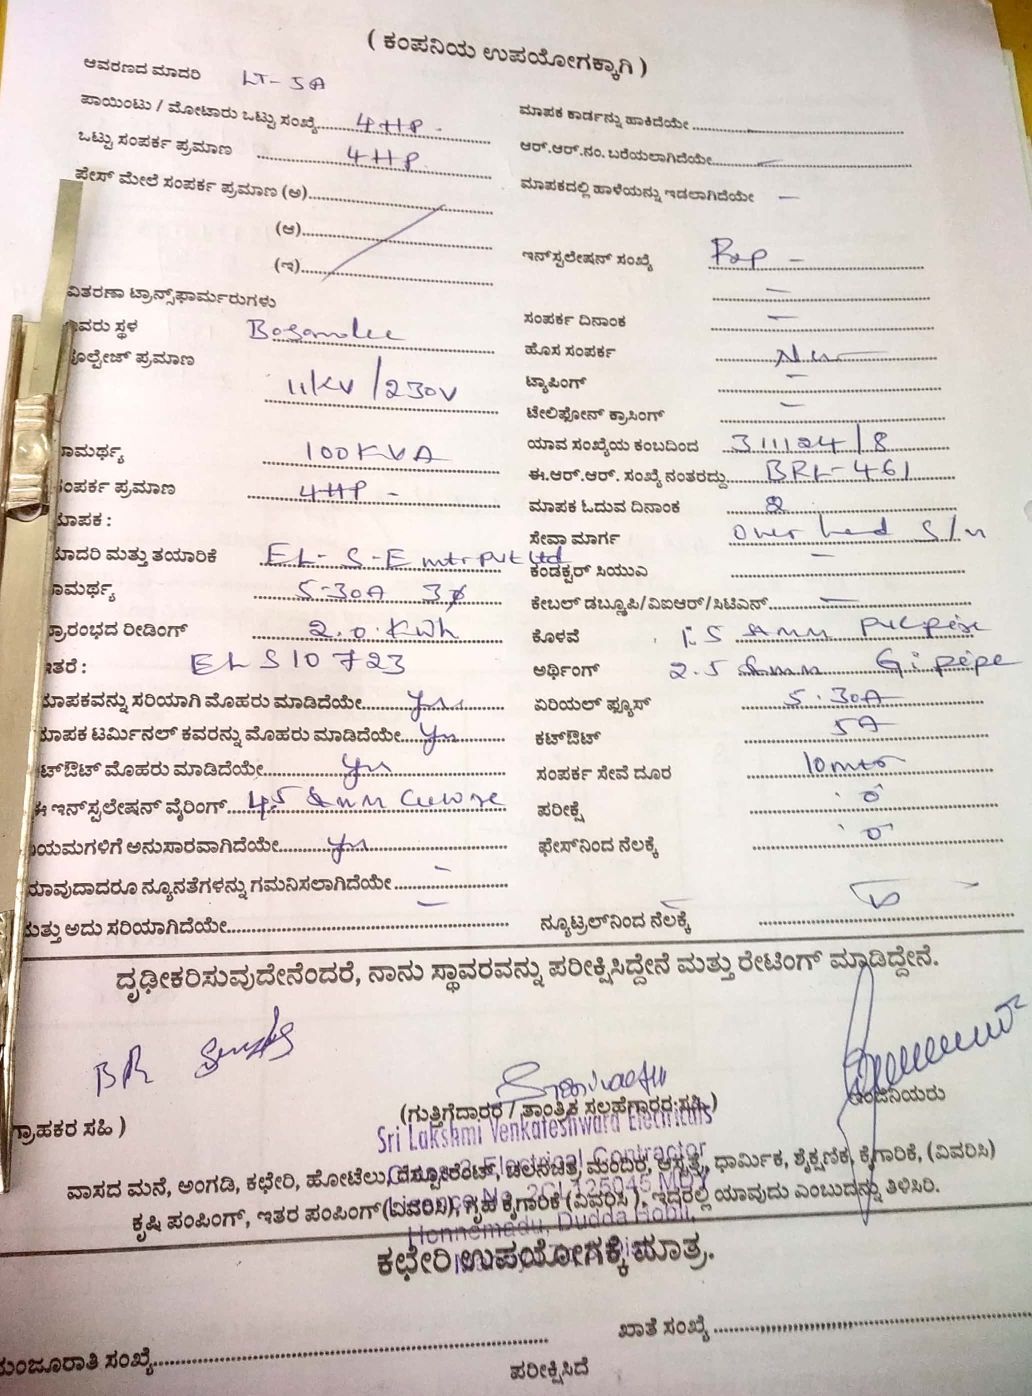 ( ಕಂಪನಿಯ ಉಪಯೋಗಕ್ಕಾಗಿ )
ಆವರಣದ ಮಾದರಿ LT-5A
ಪಾಯಿಂಟು / ಮೋಟಾರು ಒಟ್ಟು ಸಂಖ್ಯೆ 4HP -
ಒಟ್ಟು ಸಂಪರ್ಕ ಪ್ರಮಾಣ 4HP.
ಫೇಸ್ ಮೇಲೆ ಸಂಪರ್ಕ ಪ್ರಮಾಣ (ಅ)
(ಆ)
(ಇ)
ವಿತರಣಾ ಟ್ರಾನ್ಸ್‌ಫಾರ್ಮರುಗಳು
ವರು ಸ್ಥಳ
ಲ್ಟೇಜ್ ಪ್ರಮಾಣ
11KV / 230V
ಾಮರ್ಥ್ಯ 100KVA
ಂಪರ್ಕ ಪ್ರಮಾಣ 4HP -
ಾಪಕ :
ಾದರಿ ಮತ್ತು ತಯಾರಿಕೆ EL-S-E mtr Pvt Ltd
ಾಮರ್ಥ್ಯ 5-30A 3ϕ
್ರಾರಂಭದ ರೀಡಿಂಗ್ 2.0.KWh
ಇತರೆ : ELS10723
ಾಪಕವನ್ನು ಸರಿಯಾಗಿ ಮೊಹರು ಮಾಡಿದೆಯೇ Yes
ಾಪಕ ಟರ್ಮಿನಲ್ ಕವರನ್ನು ಮೊಹರು ಮಾಡಿದೆಯೇ Yes
ಕಟ್‌ಔಟ್ ಮೊಹರು ಮಾಡಿದೆಯೇ Yes
ಈ ಇನ್‌ಸ್ಟಲೇಷನ್ ವೈರಿಂಗ್
ಯಮಗಳಿಗೆ ಅನುಸಾರವಾಗಿದೆಯೇ Yes
ಯಾವುದಾದರೂ ನ್ಯೂನತೆಗಳನ್ನು ಗಮನಿಸಲಾಗಿದೆಯೇ -
ಮತ್ತು ಅದು ಸರಿಯಾಗಿದೆಯೇ -
ಮಾಪಕ ಕಾರ್ಡನ್ನು ಹಾಕಿದೆಯೇ
ಆರ್.ಆರ್.ನಂ. ಬರೆಯಲಾಗಿದೆಯೇ -
ಮಾಪಕದಲ್ಲಿ ಹಾಳೆಯನ್ನು ಇಡಲಾಗಿದೆಯೇ -
ಇನ್‌ಸ್ಟಲೇಷನ್ ಸಂಖ್ಯೆ
-
ಸಂಪರ್ಕ ದಿನಾಂಕ -
ಹೊಸ ಸಂಪರ್ಕ New
ಟ್ಯಾಪಿಂಗ್ -
ಟೇಲಿಫೋನ್ ಕ್ರಾಸಿಂಗ್ -
ಯಾವ ಸಂಖ್ಯೆಯ ಕಂಬದಿಂದ 311124/8
ಈ.ಆರ್.ಆರ್. ಸಂಖ್ಯೆ ನಂತರದ್ದು BRL-461
ಮಾಪಕ ಓದುವ ದಿನಾಂಕ 2
ಸೇವಾ ಮಾರ್ಗ Over head S/n
ಕಂಡಕ್ಟರ್ ಸಿಯುಎ -
ಕೇಬಲ್ ಡಬ್ಲೂಪಿ/ವಿಐಆರ್/ಸಿಟಿಎಸ್ -
ಕೊಳವೆ 1.5 Sqmm PVC pipe
ಅರ್ಥಿಂಗ್ 2.5 Sqmm Gi pipe
ಏರಿಯಲ್ ಫ್ಯೂಸ್ 5.30A
ಕಟ್‌ಔಟ್ 5A
ಸಂಪರ್ಕ ಸೇವೆ ದೂರ 10 mtr
ಪರೀಕ್ಷೆ 'o'
ಫೇಸ್‌ನಿಂದ ನೆಲಕ್ಕೆ 'o'
ನ್ಯೂಟ್ರಲ್‌ನಿಂದ ನೆಲಕ್ಕೆ
ದೃಢೀಕರಿಸುವುದೇನೆಂದರೆ, ನಾನು ಸ್ಥಾವರವನ್ನು ಪರೀಕ್ಷಿಸಿದ್ದೇನೆ ಮತ್ತು ರೇಟಿಂಗ್ ಮಾಡಿದ್ದೇನೆ.
ಗ್ರಾಹಕರ ಸಹಿ )
(ಗುತ್ತಿಗೆದಾರರ / ತಾಂತ್ರಿಕ ಸಲಹೆಗಾರರ ಸಹಿ )
Sri Lakshmi Venkateshwara Electricals
Class-2 Electrical Contractor
Honnemadu, Dudda Hobli,
ವಾಸದ ಮನೆ, ಅಂಗಡಿ, ಕಛೇರಿ, ಹೋಟೆಲು, ರೆಸ್ಟೋರೆಂಟ್, ಚಲನಚಿತ್ರ ಮಂದಿರ, ಆಸ್ಪತ್ರೆ, ಧಾರ್ಮಿಕ, ಶೈಕ್ಷಣಿಕ, ಕೈಗಾರಿಕೆ, (ವಿವರಿಸಿ)
ಕೃಷಿ ಪಂಪಿಂಗ್, ಇತರ ಪಂಪಿಂಗ್ (ವಿವರಿಸಿ), ಗೃಹ ಕೈಗಾರಿಕೆ (ವಿವರಿಸಿ ), ಇದರಲ್ಲಿ ಯಾವುದು ಎಂಬುದನ್ನು ತಿಳಿಸಿರಿ.
ಕಛೇರಿ ಉಪಯೋಗಕ್ಕೆ ಮಾತ್ರ.
ಮಂಜೂರಾತಿ ಸಂಖ್ಯೆ
ಖಾತೆ ಸಂಖ್ಯೆ
ಪರೀಕ್ಷಿಸಿದೆ